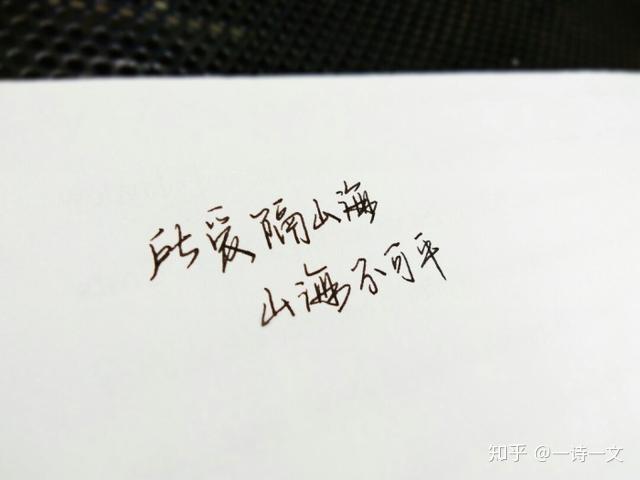 所爱隔山海
山海不可平
知乎 @一诗一文